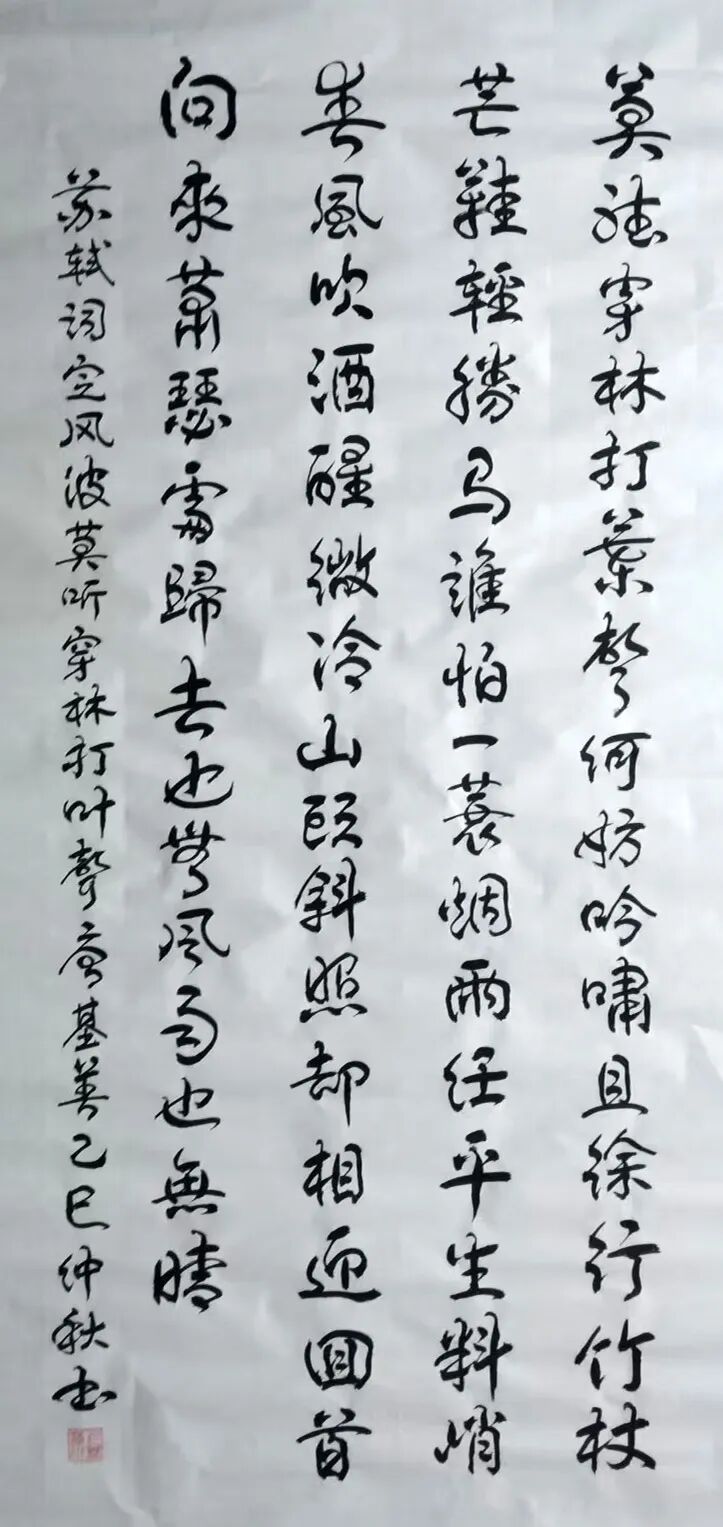 莫聽穿林打葉聲何妨吟嘯且徐行竹杖
芒鞋輕勝马誰怕一蓑烟雨任平生料峭
春風吹酒醒微冷山頭斜照却相迎回首
向來蕭瑟處歸去也無风雨也無晴
苏轼词定风波莫听穿林打叶聲基善乙巳仲秋书